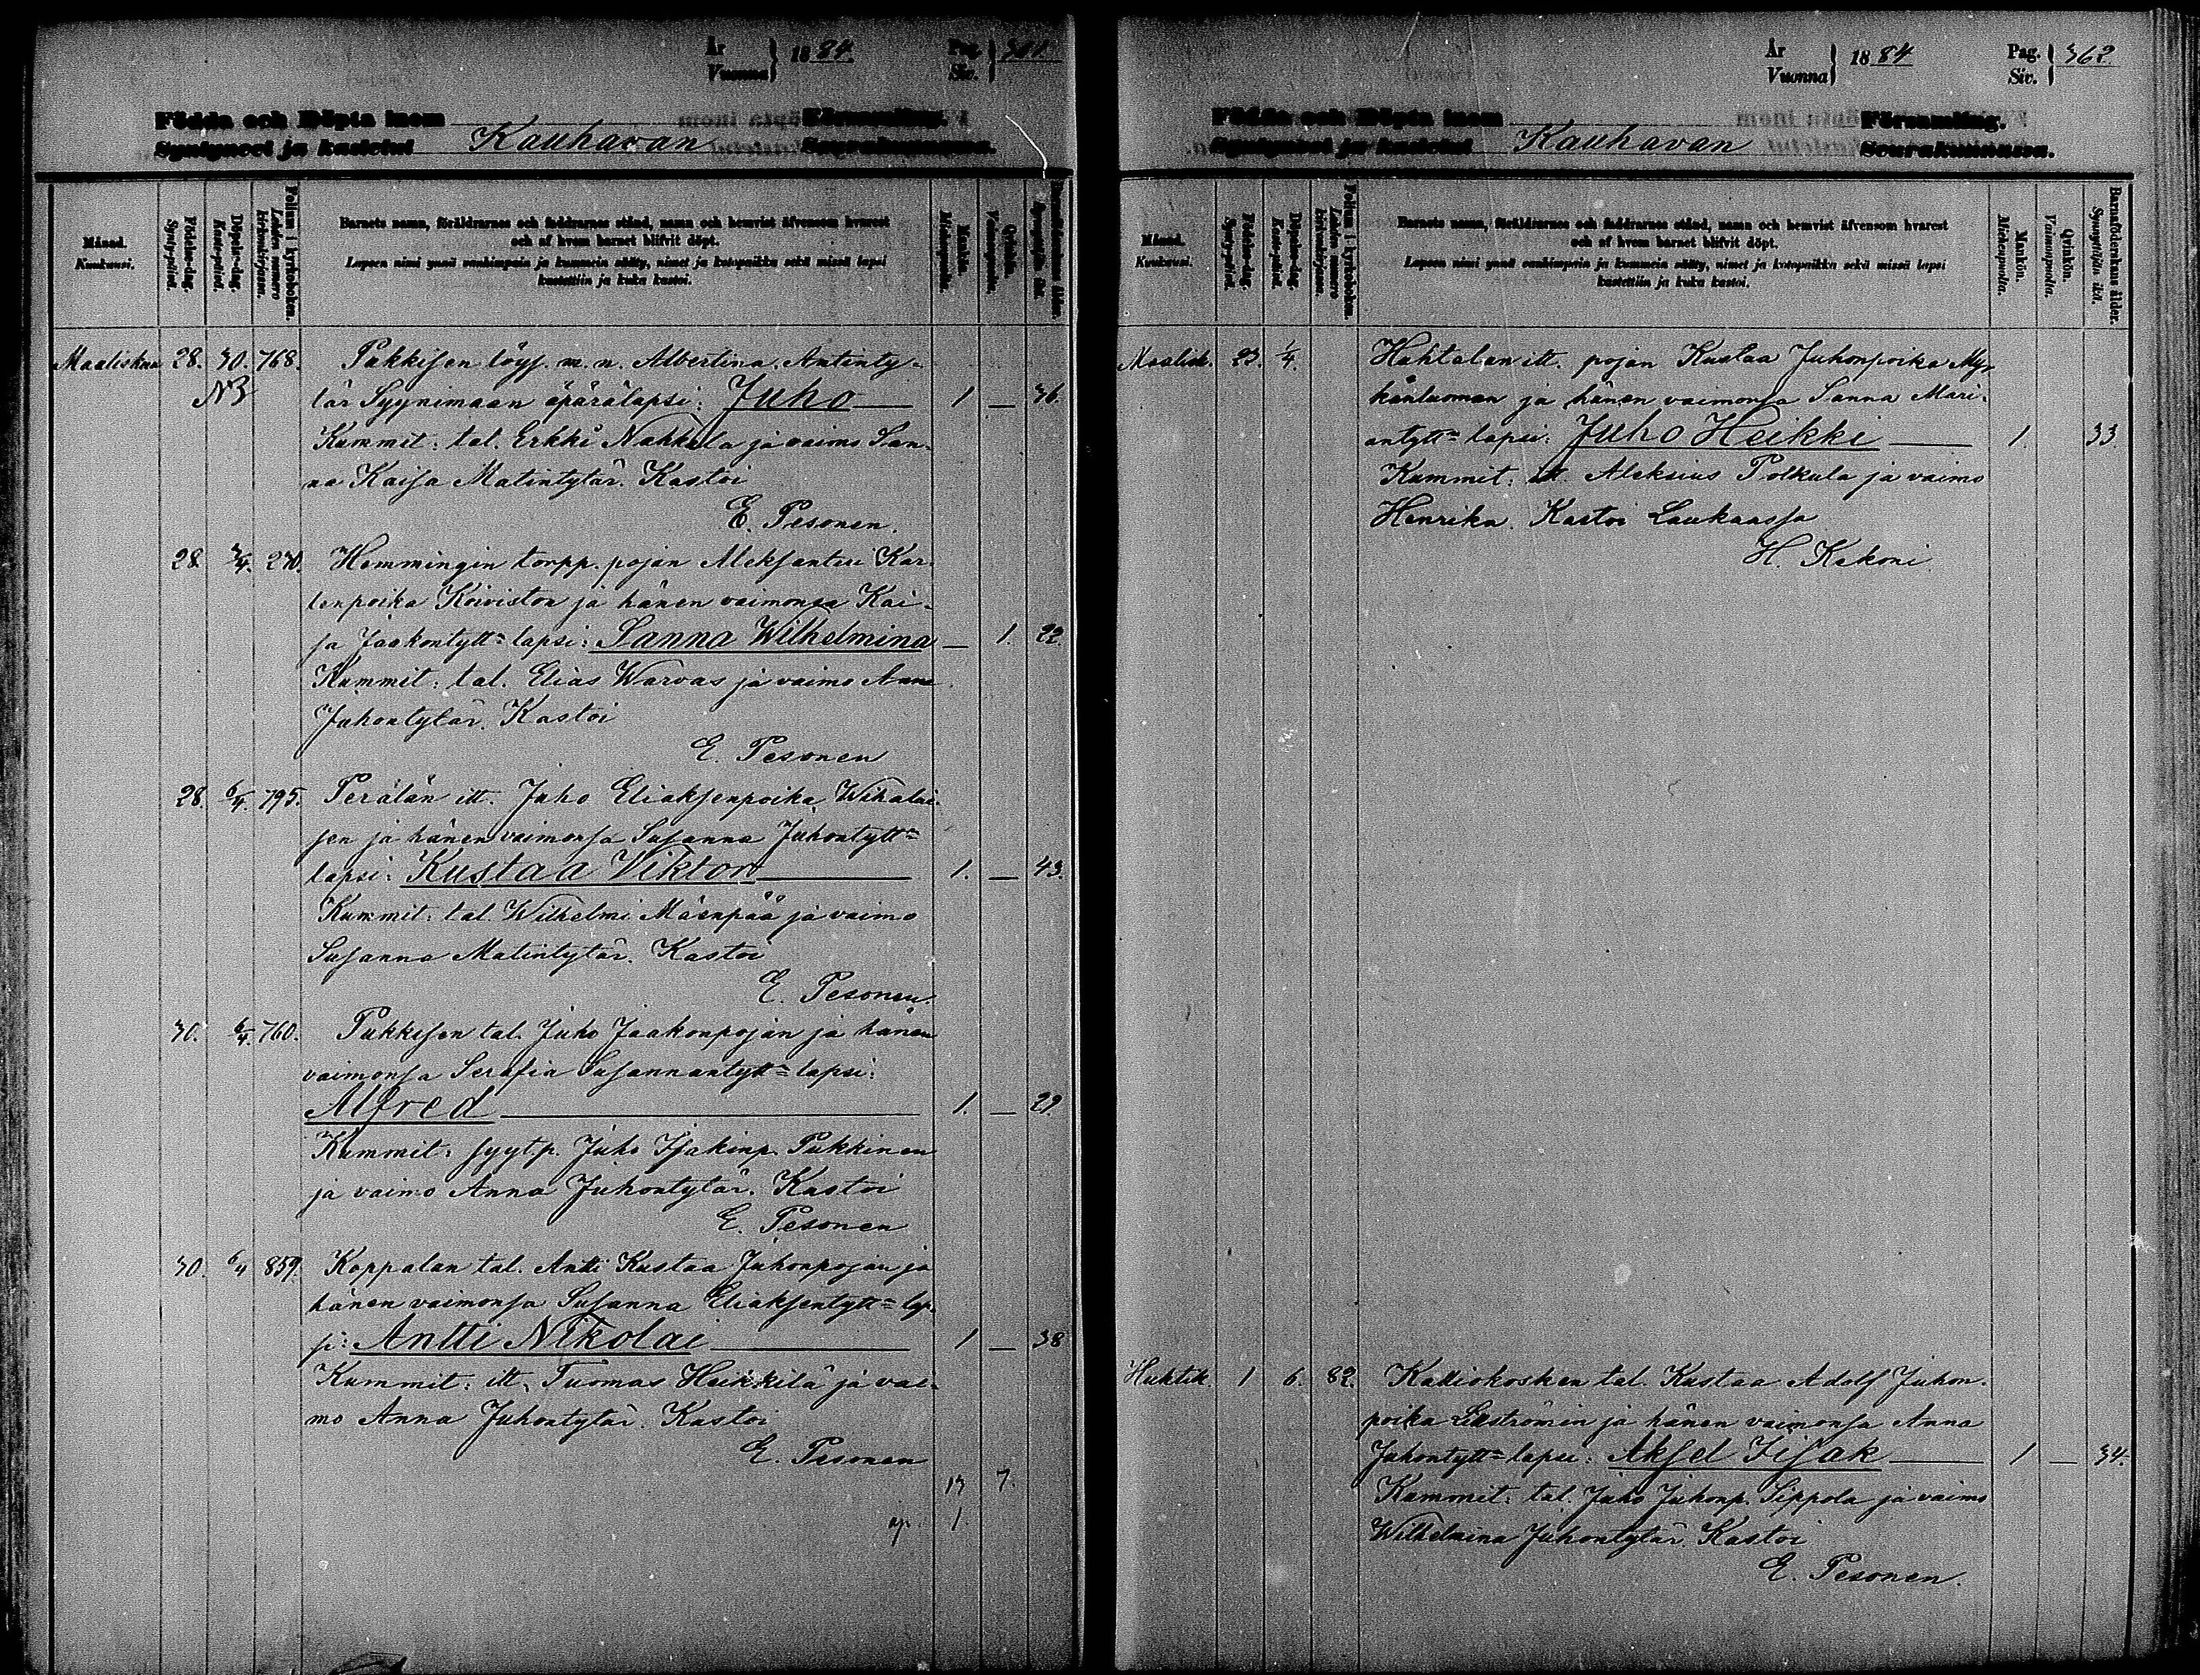 År
Vuonna } 1884.
Pag.
Siv. } 361.
Födda och Döpta inom Kauhavan Församling.
Syntyneet ja kastetut Seurakunnassa.
Månad.
Kuukausi.
Födelse-dag.
Syntypäivä.
Döpelse-dag.
Kaste-päivä.
Folium i kyrkoboken.
Lehden numero kirkonkirjassa.
Barnets namn, föräldrarnes och faddrarnes stånd, namn och hemvist äfvensom hvarest
och af hvem barnet blifvit döpt.
Lapsen nimi ynnä vanhimpain ja kummein sääty, nimet ja kotopaikka sekä missä lapsi
kastettiin ja kuka kastoi.
Mankön.
Miehenpuolia.
Qvinkön.
Vaimonpuolia.
Barnaföderskans ålder.
Synnyttäjän ikä.
Maaliskuu 28. 30. 768. Pukkisen löys. m. n. Albertina Antinty-
NB tär Syynimaan äpärälapsi: Juho 1 — 36.
Kummit: tal. Erkki Nahkala ja vaimo San-
na Kaisa Matintytär. Kastoi
E. Pesonen.
28. 3/4. 270. Hemmingin torpp. pojan Aleksanteri Kar-
lenpoika Koiviston ja hänen vaimonsa Kai-
sa Jaakontytt= lapsi: Sanna Wilhelmina — 1. 22.
Kummit: tal. Elias Warvas ja vaimo Anna
Juhontytär. Kastoi
E. Pesonen
28. 6/4. 795. Perälän itt. Juho Eliaksenpoika Wihalai-
sen ja hänen vaimonsa Susanna Juhontytt=
lapsi: Kustaa Viktor 1. — 43.
Kummit: tal. Wilhelmi Mäenpää ja vaimo
Susanna Matintytär. Kastoi
E. Pesonen.
30. 6/4. 760. Pukkisen tal. Juho Jaakonpojan ja hänen
vaimonsa Serafia Susannantytt= lapsi:
Alfred 1. — 29.
Kummit: syyt.p. Juho Isakinp. Pukkinen
ja vaimo Anna Juhontytär. Kastoi
E. Pesonen
30. 6/4 859. Koppalan tal. Antti Kustaa Juhonpojan ja
hänen vaimonsa Susanna Eliaksentytt= lap-
si: Antti Nikolai 1 — 38
Kummit: itt. Tuomas Heikkilä ja vai-
mo Anna Juhontytär. Kastoi
E. Pesonen
13 7.
äp. 1.
År
Vuonna } 1884
Pag.
Siv. } 362
Födda och Döpta inom Kauhavan Församling.
Syntyneet ja kastetut Seurakunnassa.
Månad.
Kuukausi.
Födelse-dag.
Syntypäivä.
Döpelse-dag.
Kaste-päivä.
Folium i kyrkoboken.
Lehden numero kirkonkirjassa.
Barnets namn, föräldrarnes och faddrarnes stånd, namn och hemvist äfvensom hvarest
och af hvem barnet blifvit döpt.
Lapsen nimi ynnä vanhimpain ja kummein sääty, nimet ja kotopaikka sekä missä lapsi
kastettiin ja kuka kastoi.
Mankön.
Miehenpuolia.
Qvinkön.
Vaimonpuolia.
Barnaföderskans ålder.
Synnyttäjän ikä.
Maalisk. 23. 1/4. Huhtalan itt. pojan Kustaa Juhonpoika My-
känluoman ja hänen vaimonsa Sanna Mari-
antytt= lapsi: Juho Heikki 1. 33
Kummit: itt. Aleksius Polkula ja vaimo
Henrika. Kastoi Laukaassa
H. Kekoni.
Huhtik. 1 6. 82. Kalliokosken tal. Kustaa Adolf Juhon-
poika Liströmin ja hänen vaimonsa Anna
Juhontytt= lapsi: Aksel Iisak 1 — 34.
Kummit: tal. Juho Juhonp. Sippola ja vaimo
Wilhelmina Juhontytär. Kastoi
E. Pesonen.